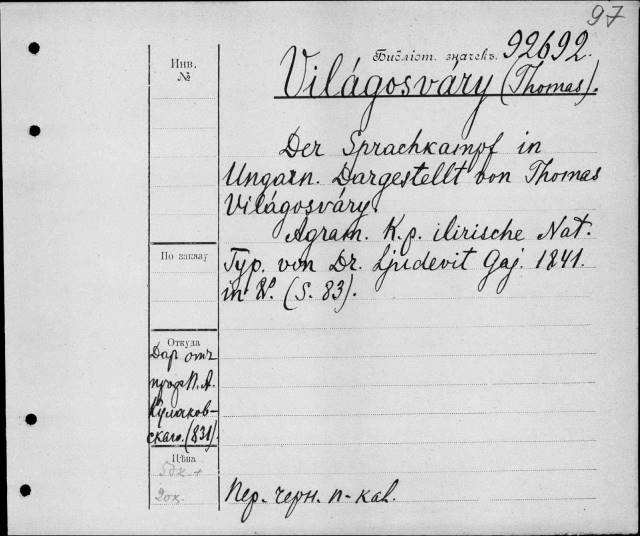 97
Инв.
№
Библіот. значекъ. 92692.
Világosváry (Thomas).
Der Sprachkampf in
Ungarn. Dargestellt von Thomas
Világosváry.
Agram. K. p. ilirische Nat.
Typ. von Dr. Ljudevit Gaj. 1841.
in 8º. (S. 83).
По заказу
Откуда
Дар отъ
проф. П. А.
Кулаков-
скаго. (831).
Цѣна
50к +
20к.
Пер. черн. п-кал.